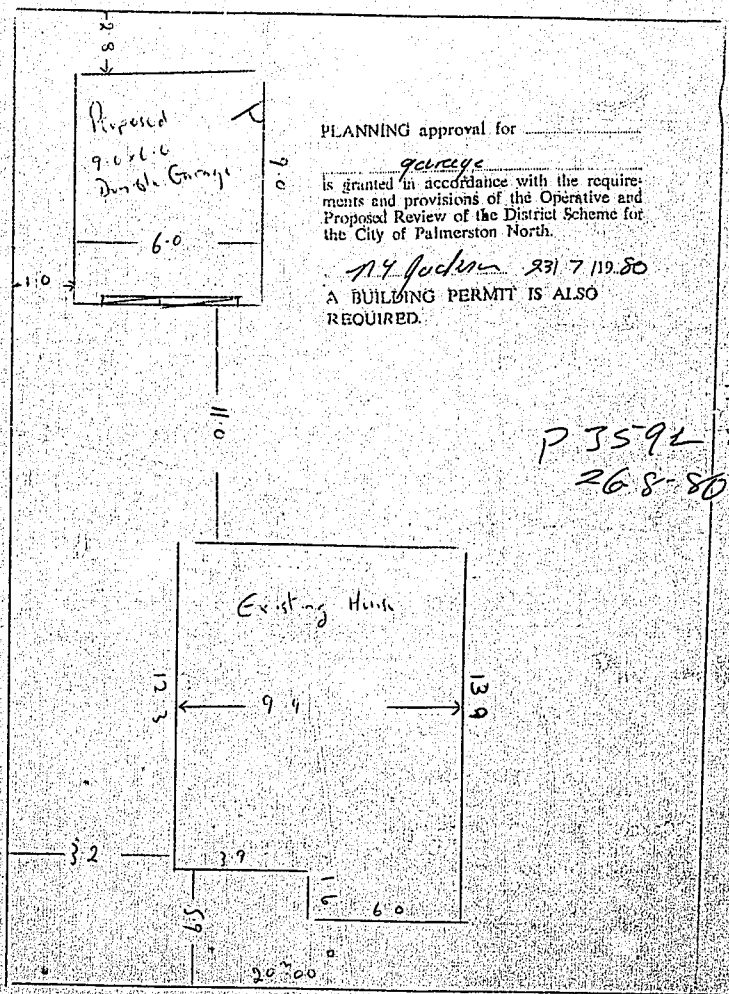 2.8
Proposed
9.0 x 6.0
Double Garage
9.0
6.0
1.0
PLANNING approval for
garage
is granted in accordance with the require-
ments and provisions of the Operative and
Proposed Review of the District Scheme for
the City of Palmerston North.
23/ 7 /19.80
A BUILDING PERMIT IS ALSO
REQUIRED.
11.0
26-8-80
Existing House
12.3
13.9
3.2
3.9
1.6
6.0
5.9
20.00